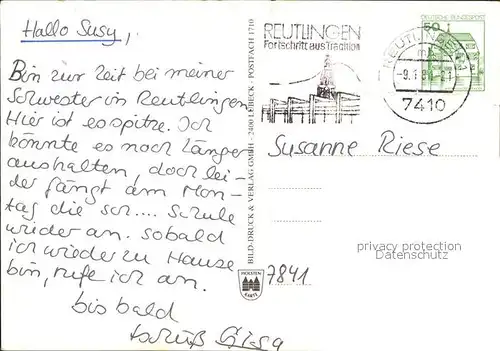 Hallo Susy,
Bin zur Zeit bei meiner
Schwester in Reutlingen
Hier ist es spitze. Ich
könnte es noch länger
aushalten, doch lei-
der fängt am Mon-
tag die sch.... Schule
wieder an. sobald
ich wieder zu Hause
bin, rufe ich an.
bis bald
tschüß
BILD-DRUCK & VERLAG GMBH · 2400 LÜBECK · POSTFACH 1710
HOLSTEN
KARTE
REUTLINGEN
Fortschritt aus Tradition
REUTLINGEN 1
7410
DEUTSCHE BUNDESPOST
50
Susanne Riese
privacy protection
Datenschutz
7841